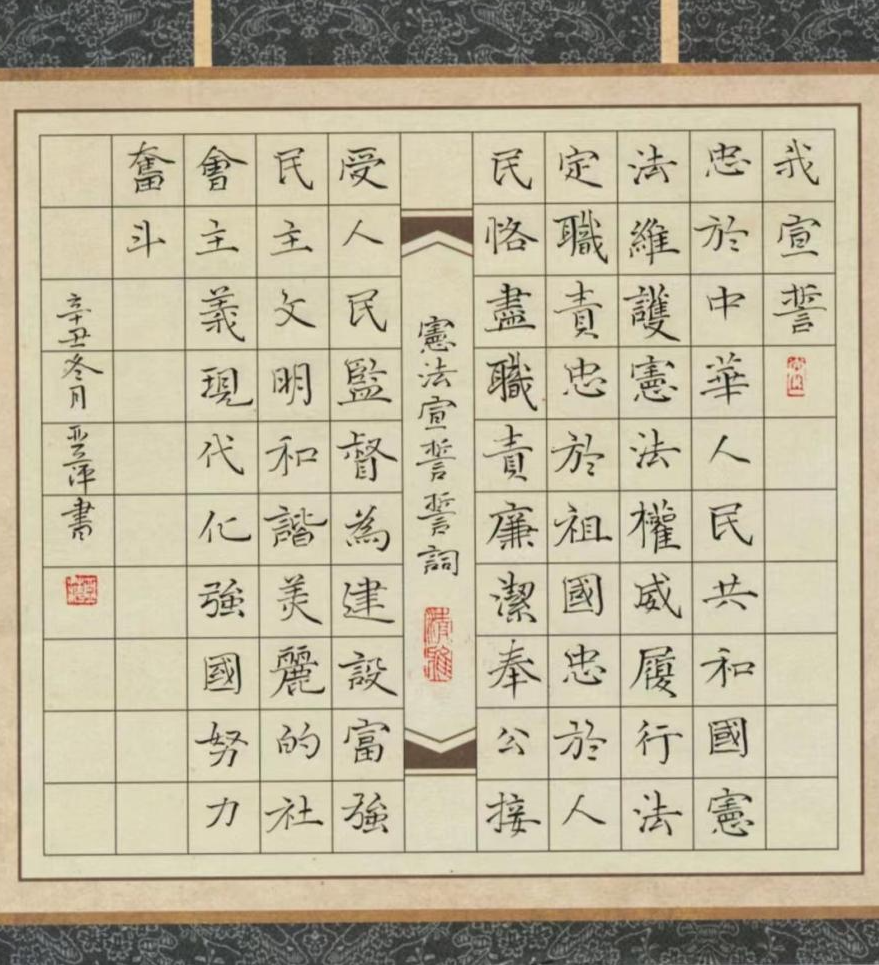 我宣誓
忠於中華人民共和國憲
法維護憲法權威履行法
定職責忠於祖國忠於人
民恪盡職責廉潔奉公接
憲法宣誓誓詞
清雅
受人民監督為建設富強
民主文明和諧美麗的社
會主義現代化強國努力
奮斗
辛丑冬月亞萍書